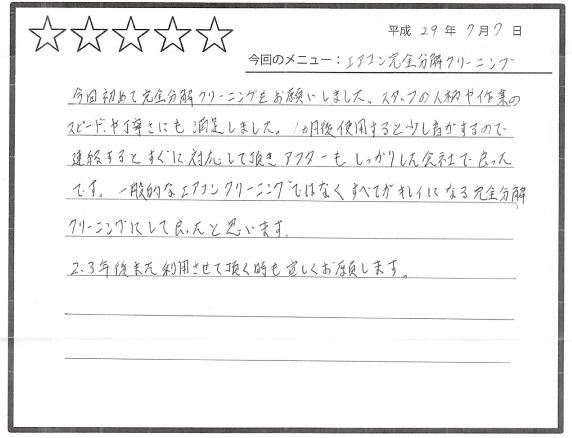 平成 29 年 7月 7 日
今回のメニュー：エアコン完全分解クリーニング
今回初めて完全分解クリーニングをお願いしました、スタッフの人柄や作業の
スピードや丁寧さにも満足しました。1ヵ月後使用すると少し音がするので
連絡するとすぐに対応して頂きアフターもしっかりした会社で良った
です。一般的なエアコンクリーニングではなくすべてがキレイになる完全分解
クリーニングにして良ったと思います。
2、3年後また利用させて頂く時も宜しくお願します。